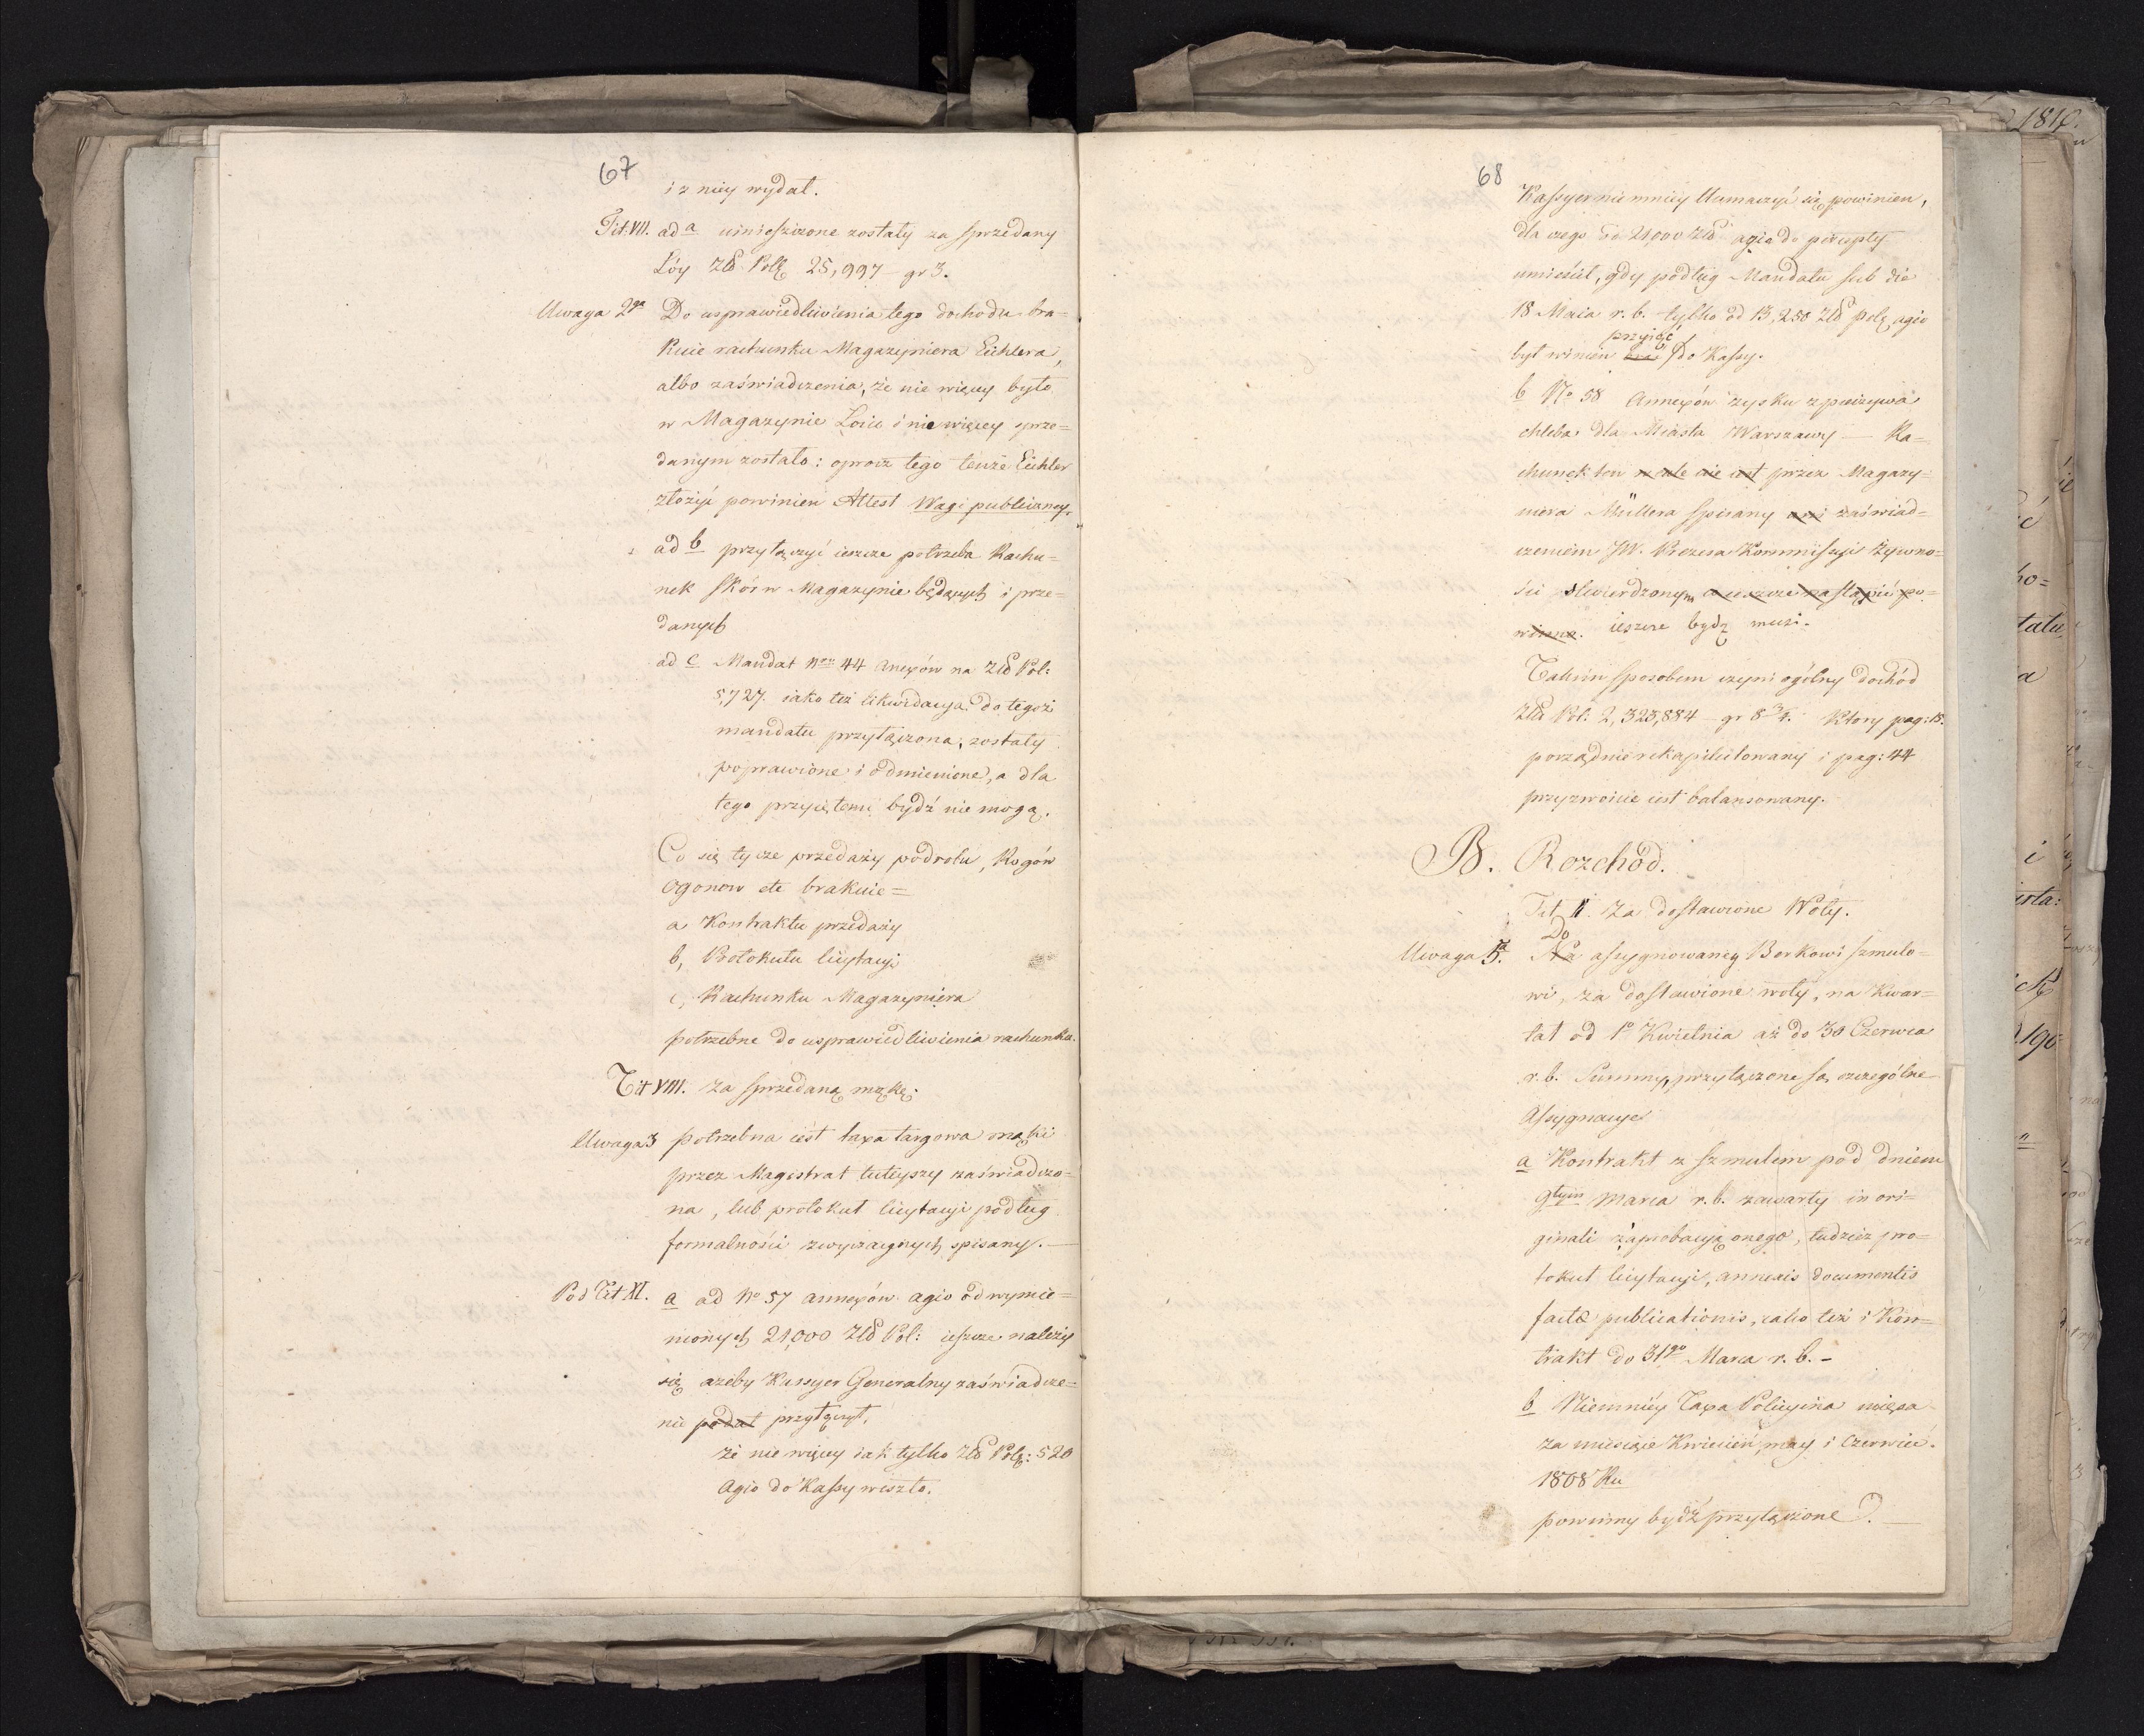 67
i z niey wydał.
Tit. VII. ad a umieszczone zostały za sprzedany
Łóy Złł Polł 25,997 gr 3.
Uwaga 2ga Do usprawiedliwienia tego dochodu bra=
kuie rachunku Magazyniera Eichlera,
albo zaświadczenia, że nie więcey było
w Magazynie Łoiu i nie więcey sprze=
danym zostało: oprocz tego tenże Eichler
złożyć powinien Attest Wagi publiczney.
ad b przyłączyć ieszcze potrzeba Rachu=
nek skór w Magazynie będących i prze=
danych
ad c Mandat Nro 44 Anexów na Złł Pol:
5,727. iako też likwidacya do tegoż
mandatu przyłączona, zostały
poprawione i odmienione, a dla
tego przyiętemi bydź nie mogą.
Co się tycze przedaży podrobu, Rogów
Ogonow etc brakuie=
a Kontraktu przedaży
b, Protokułu licytacyi
c, Rachunku Magazyniera
potrzebne do usprawiedliwienia rachunku.
Tit VIII. Za sprzedaną mąkę.
Uwaga 3 potrzebna iest taxa targowa mąki
przez Magistrat tuteyszy zaświadczo=
na, lub protokuł licytacyi podług
formalności zwyczaynych spisany.
Pod Tit XI. a ad No 57 annexów agio od wymie=
nionych 21,000 Złł Pol: ieszcze należy
się ażeby Kassyer Generalny zaświadcze=
nie podał przyłączył,
że nie więcey iak tylko Złł Polł: 520
Agio do Kassy weszło.
68
Kassyer nie mniey tłumaczyć się powinien,
dla czego od 21,000 Złł agio do percepty
umieścił, gdy podług Mandatu sub die
18 Maia r. b. tylko od 13,250 Złł polł agio
przyiąć
był winien brać do Kassy.
b No 58 Annexów zysku z pieczywa
chleba dla Miasta Warszawy — Ra=
chunek ten wcale nie iest przez Magazy=
niera Müllera spisany ani zaświad=
czeniem JW. Prezesa Kommissyi Żywno=
ści stwierdzonym co ieszcze nastąpić po=
winno. ieszcze bydz musi.
Takim sposobem czyni ogólny dochód
Złł Pol: 2,323,884 gr 8 3/4. Ktory pag: 15.
porządnie rekapitulowany i pag: 44
przyzwoicie iest balansowany.
B. Rozchód.
Tit II. Za dostawione Woły.
Do
Uwaga 5ta. Na assygnowaney Berkowi Szmulo=
wi, za dostawione woły, na Kwar=
tał od 1o Kwietnia aż do 30 Czerwca
r. b. Summy, przyłączone są szczególne
Assygnacye
a Kontrakt z Szmulem pod dniem
9tym Marca r. b. zawarty in ori=
ginali z approbacyą onego, tudzież pro=
tokuł licytacyi, annexis documentis
factæ publicationis, iako też i Kon=
trakt do 31go Marca r. b. -
b Niemniéy Taxa Policyina mięsa
za miesiące Kwiecień, may i Czerwiec.
1808 Ru
powinny bydź przyłączone.